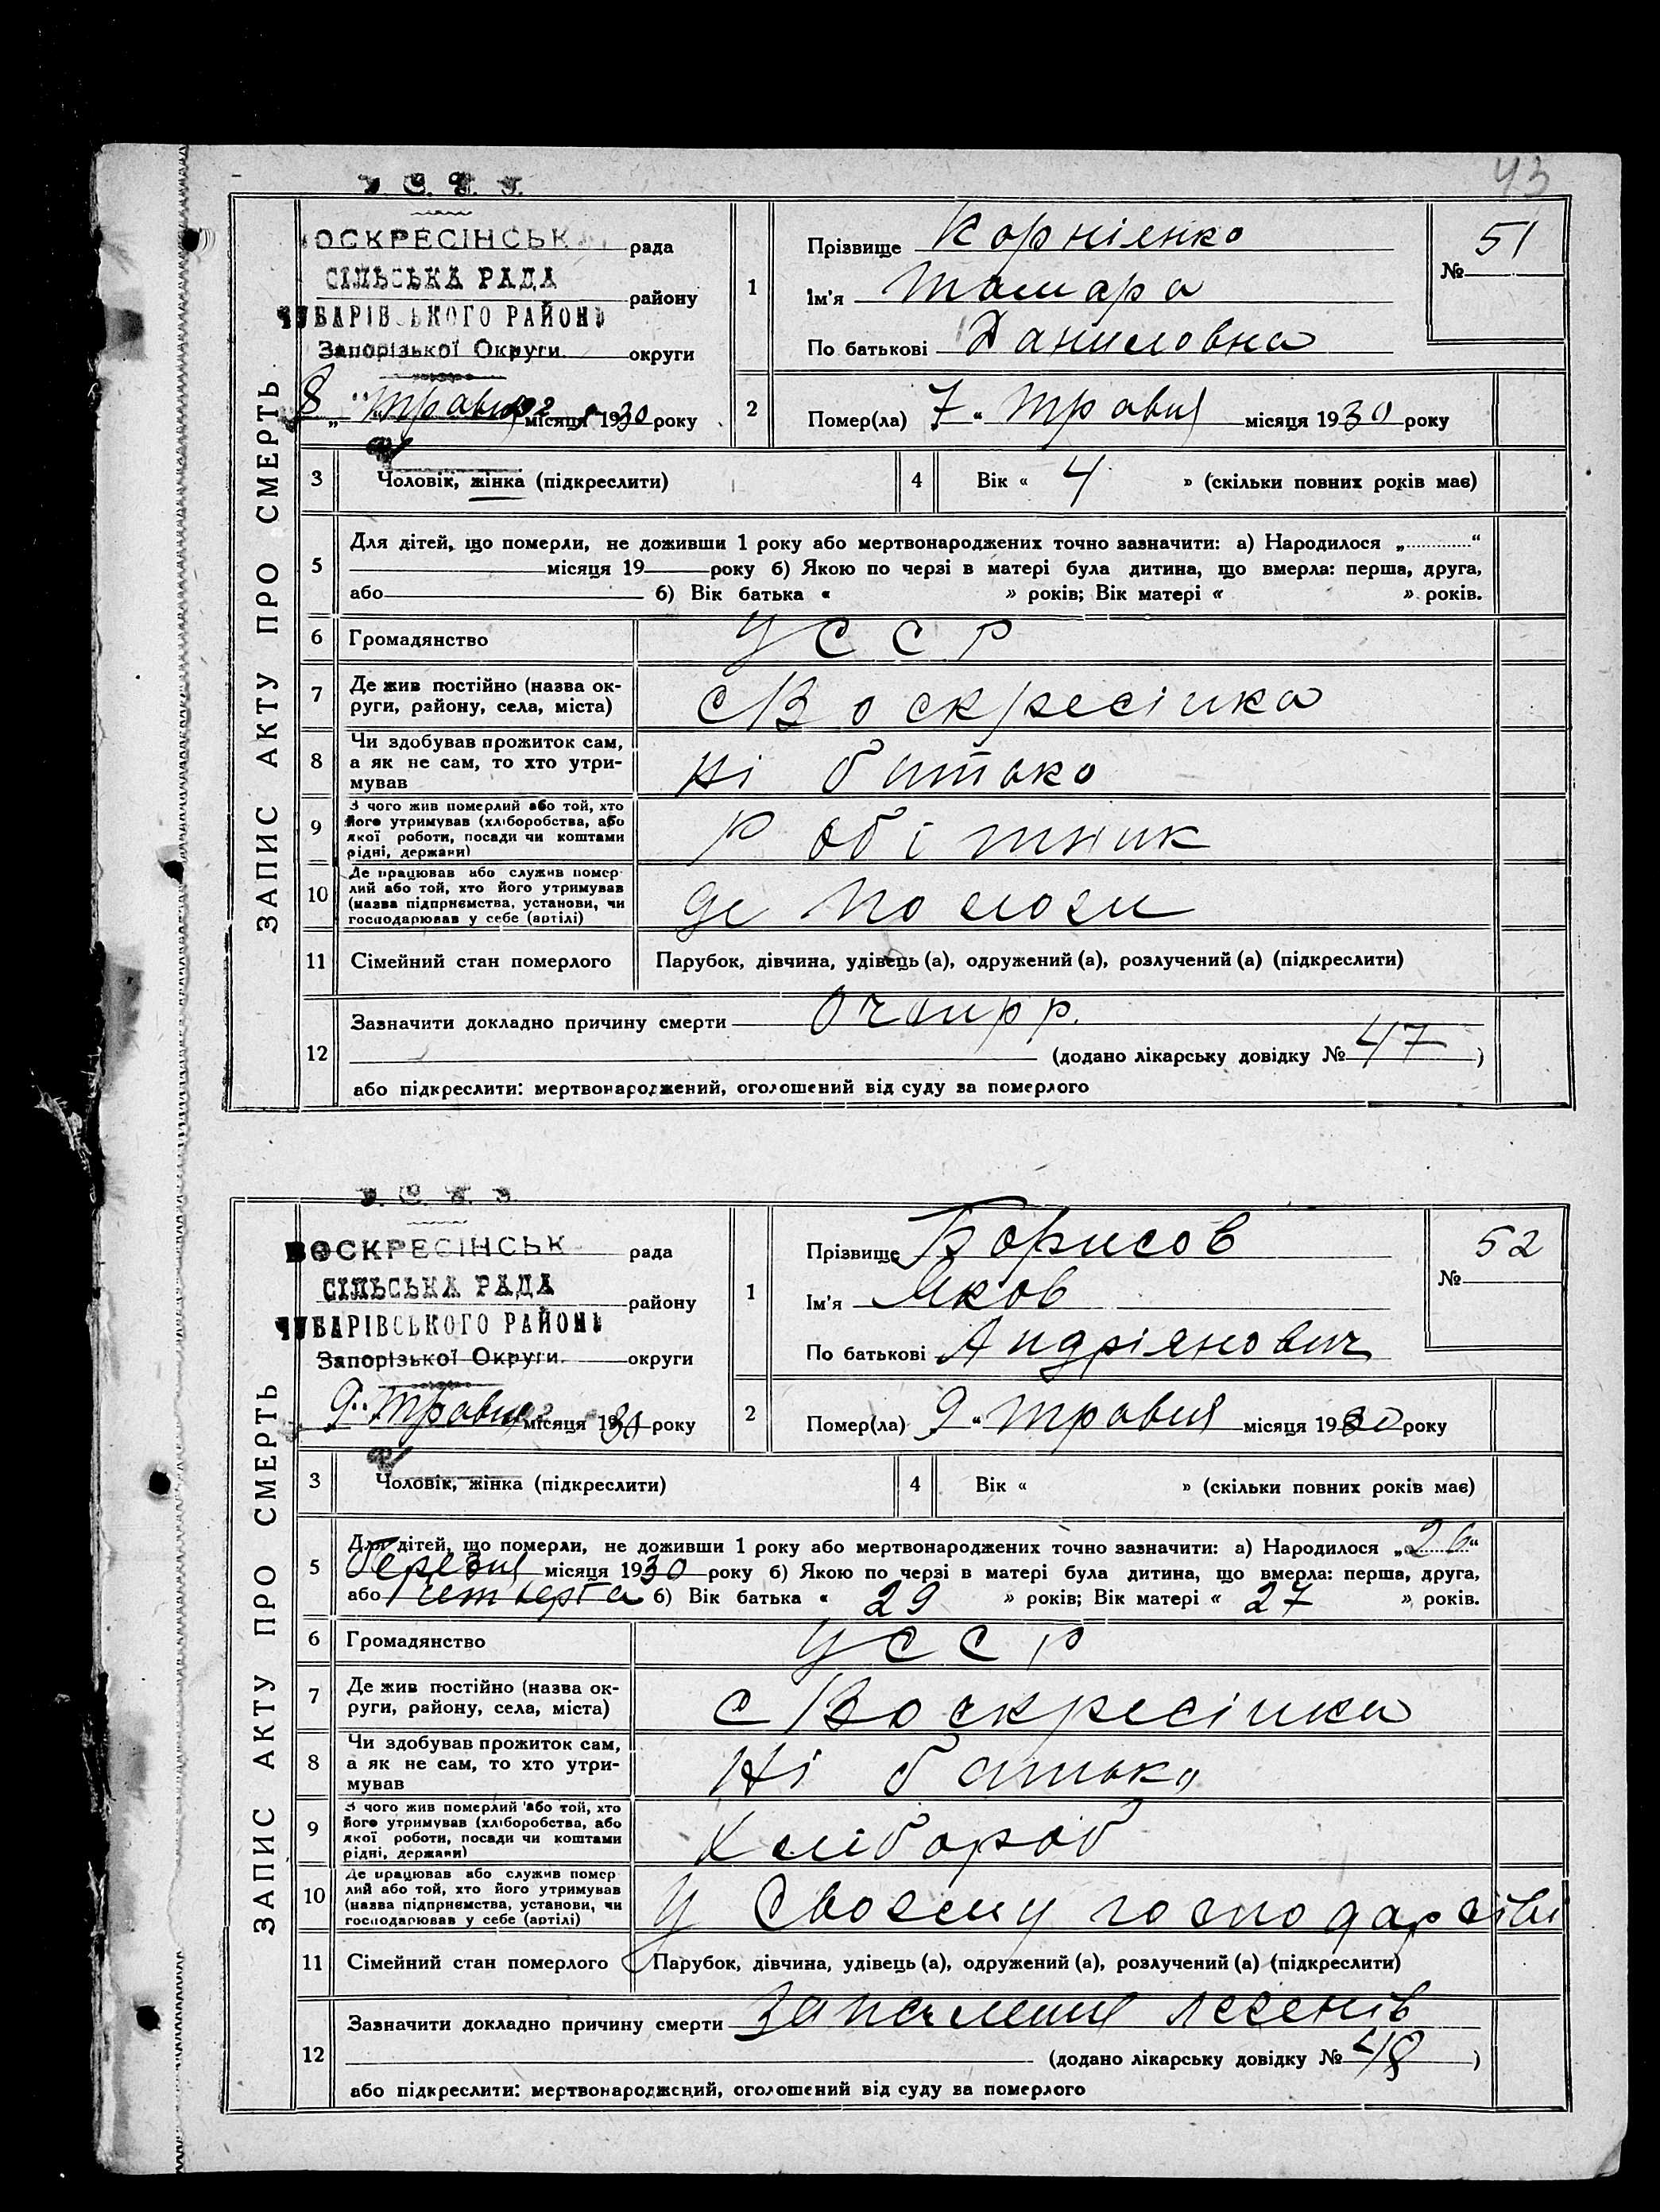 43
У. С. Р. Р.
ОСКРЕСІНСЬК рада
СІЛЬСЬКА РАДА
ЧУБАРІВСЬКОГО РАЙОНУ району
Запорізької Округи округи
8 „ травня місяця 1930 року
1 Прізвище Корніенко
Ім'я Тамара
По батькові Даниловна
№ 51
2 Помер(ла) 7 “ травня місяця 1930 року
ЗАПИС АКТУ ПРО СМЕРТЬ
3 Чоловік, жінка (підкреслити) 4 Вік « 4 » (скільки повних років має)
5 Для дітей, що померли, не доживши 1 року або мертвонароджених точно зазначити: а) Народилося „ “
місяця 19 року б) Якою по черзі в матері була дитина, що вмерла: перша, друга,
або б) Вік батька « » років; Вік матері « » років.
6 Громадянство УССР
7 Де жив постійно (назва округи, району, села, міста) с Воскресінка
8 Чи здобував прожиток сам,
а як не сам, то хто утри-
мував Ні батько
9 З чого жив померлий або той, хто
його утримував (хліборобства, або
якої роботи, посади чи коштами
рідні, держави) Робітник
10 Де працював або служив помер-
лий або той, хто його утримував
(назва підприємства, установи, чи
господарював у себе (артілі) де
11 Сімейний стан померлого Парубок, дівчина, удівець (а), одружений (а), розлучений (а) (підкреслити)
12 Зазначити докладно причину смерти
(додано лікарську довідку № 47 )
або підкреслити: мертвонароджений, оголошений від суду за померлого
У. С. Р. Р.
ВОСКРЕСІНСЬК рада
СІЛЬСЬКА РАДА
ЧУБАРІВСЬКОГО РАЙОНУ району
Запорізької Округи округи
9 „ травня місяця 1930 року
1 Прізвище Борисов
Ім'я Яков
По батькові Андріянович
№ 52
2 Помер(ла) 9 “ травня місяця 1930 року
ЗАПИС АКТУ ПРО СМЕРТЬ
3 Чоловік, жінка (підкреслити) 4 Вік « » (скільки повних років має)
5 Для дітей, що померли, не доживши 1 року або мертвонароджених точно зазначити: а) Народилося „ 26 “
березня місяця 1930 року б) Якою по черзі в матері була дитина, що вмерла: перша, друга,
або четверта б) Вік батька « 29 » років; Вік матері « 27 » років.
6 Громадянство УССР
7 Де жив постійно (назва ок-
руги, району, села, міста) с Воскресінка
8 Чи здобував прожиток сам,
а як не сам, то хто утри-
мував Ні батько
9 З чого жив померлий або той, хто
його утримував (хліборобства, або
якої роботи, посади чи коштами
рідні, держави) Хлібороб
10 Де працював або служив помер-
лий або той, хто його утримував
(назва підприємства, установи, чи
господарював у себе (артілі) У своему господарстві
11 Сімейний стан померлого Парубок, дівчина, удівець (а), одружений (а), розлучений (а) (підкреслити)
12 Зазначити докладно причину смерти Запалення легенів
(додано лікарську довідку № 48 )
або підкреслити: мертвонароджений, оголошений від суду за померлого